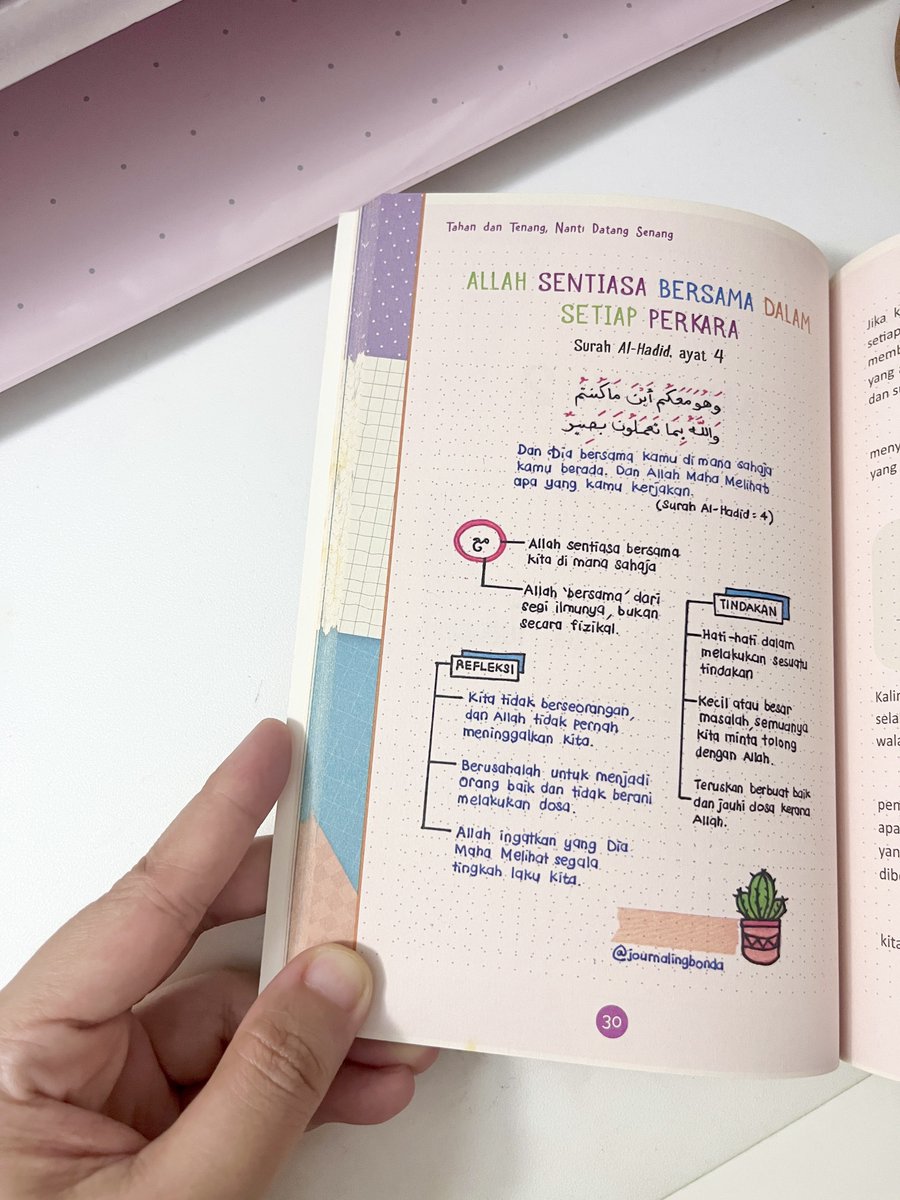 Tahan dan Tenang, Nanti Datang Senang
ALLAH SENTIASA BERSAMA DALAM
SETIAP PERKARA
Surah Al-Hadid, ayat 4
وَهُوَ مَعَكُمْ أَيْنَ مَا كُنتُمْ
وَاللَّهُ بِمَا تَعْمَلُونَ بَصِيرٌ
Dan Dia bersama kamu di mana sahaja
kamu berada. Dan Allah Maha Melihat
apa yang kamu kerjakan.
(Surah Al-Hadid: 4)
Allah sentiasa bersama
kita di mana sahaja
Allah 'bersama' dari
segi ilmunya, bukan
secara fizikal.
REFLEKSI
Kita tidak berseorangan,
dan Allah tidak pernah
meninggalkan kita.
Berusahalah untuk menjadi
orang baik dan tidak berani
melakukan dosa.
Allah ingatkan yang Dia
Maha Melihat segala
tingkah laku kita.
TINDAKAN
Hati-hati dalam
melakukan sesuatu
tindakan
Kecil atau besar
masalah, semuanya
kita minta tolong
dengan Allah.
Teruskan berbuat baik
dan jauhi dosa kerana
Allah.
@journalingbonda
30
Jika
setiap
yang
dan
yang